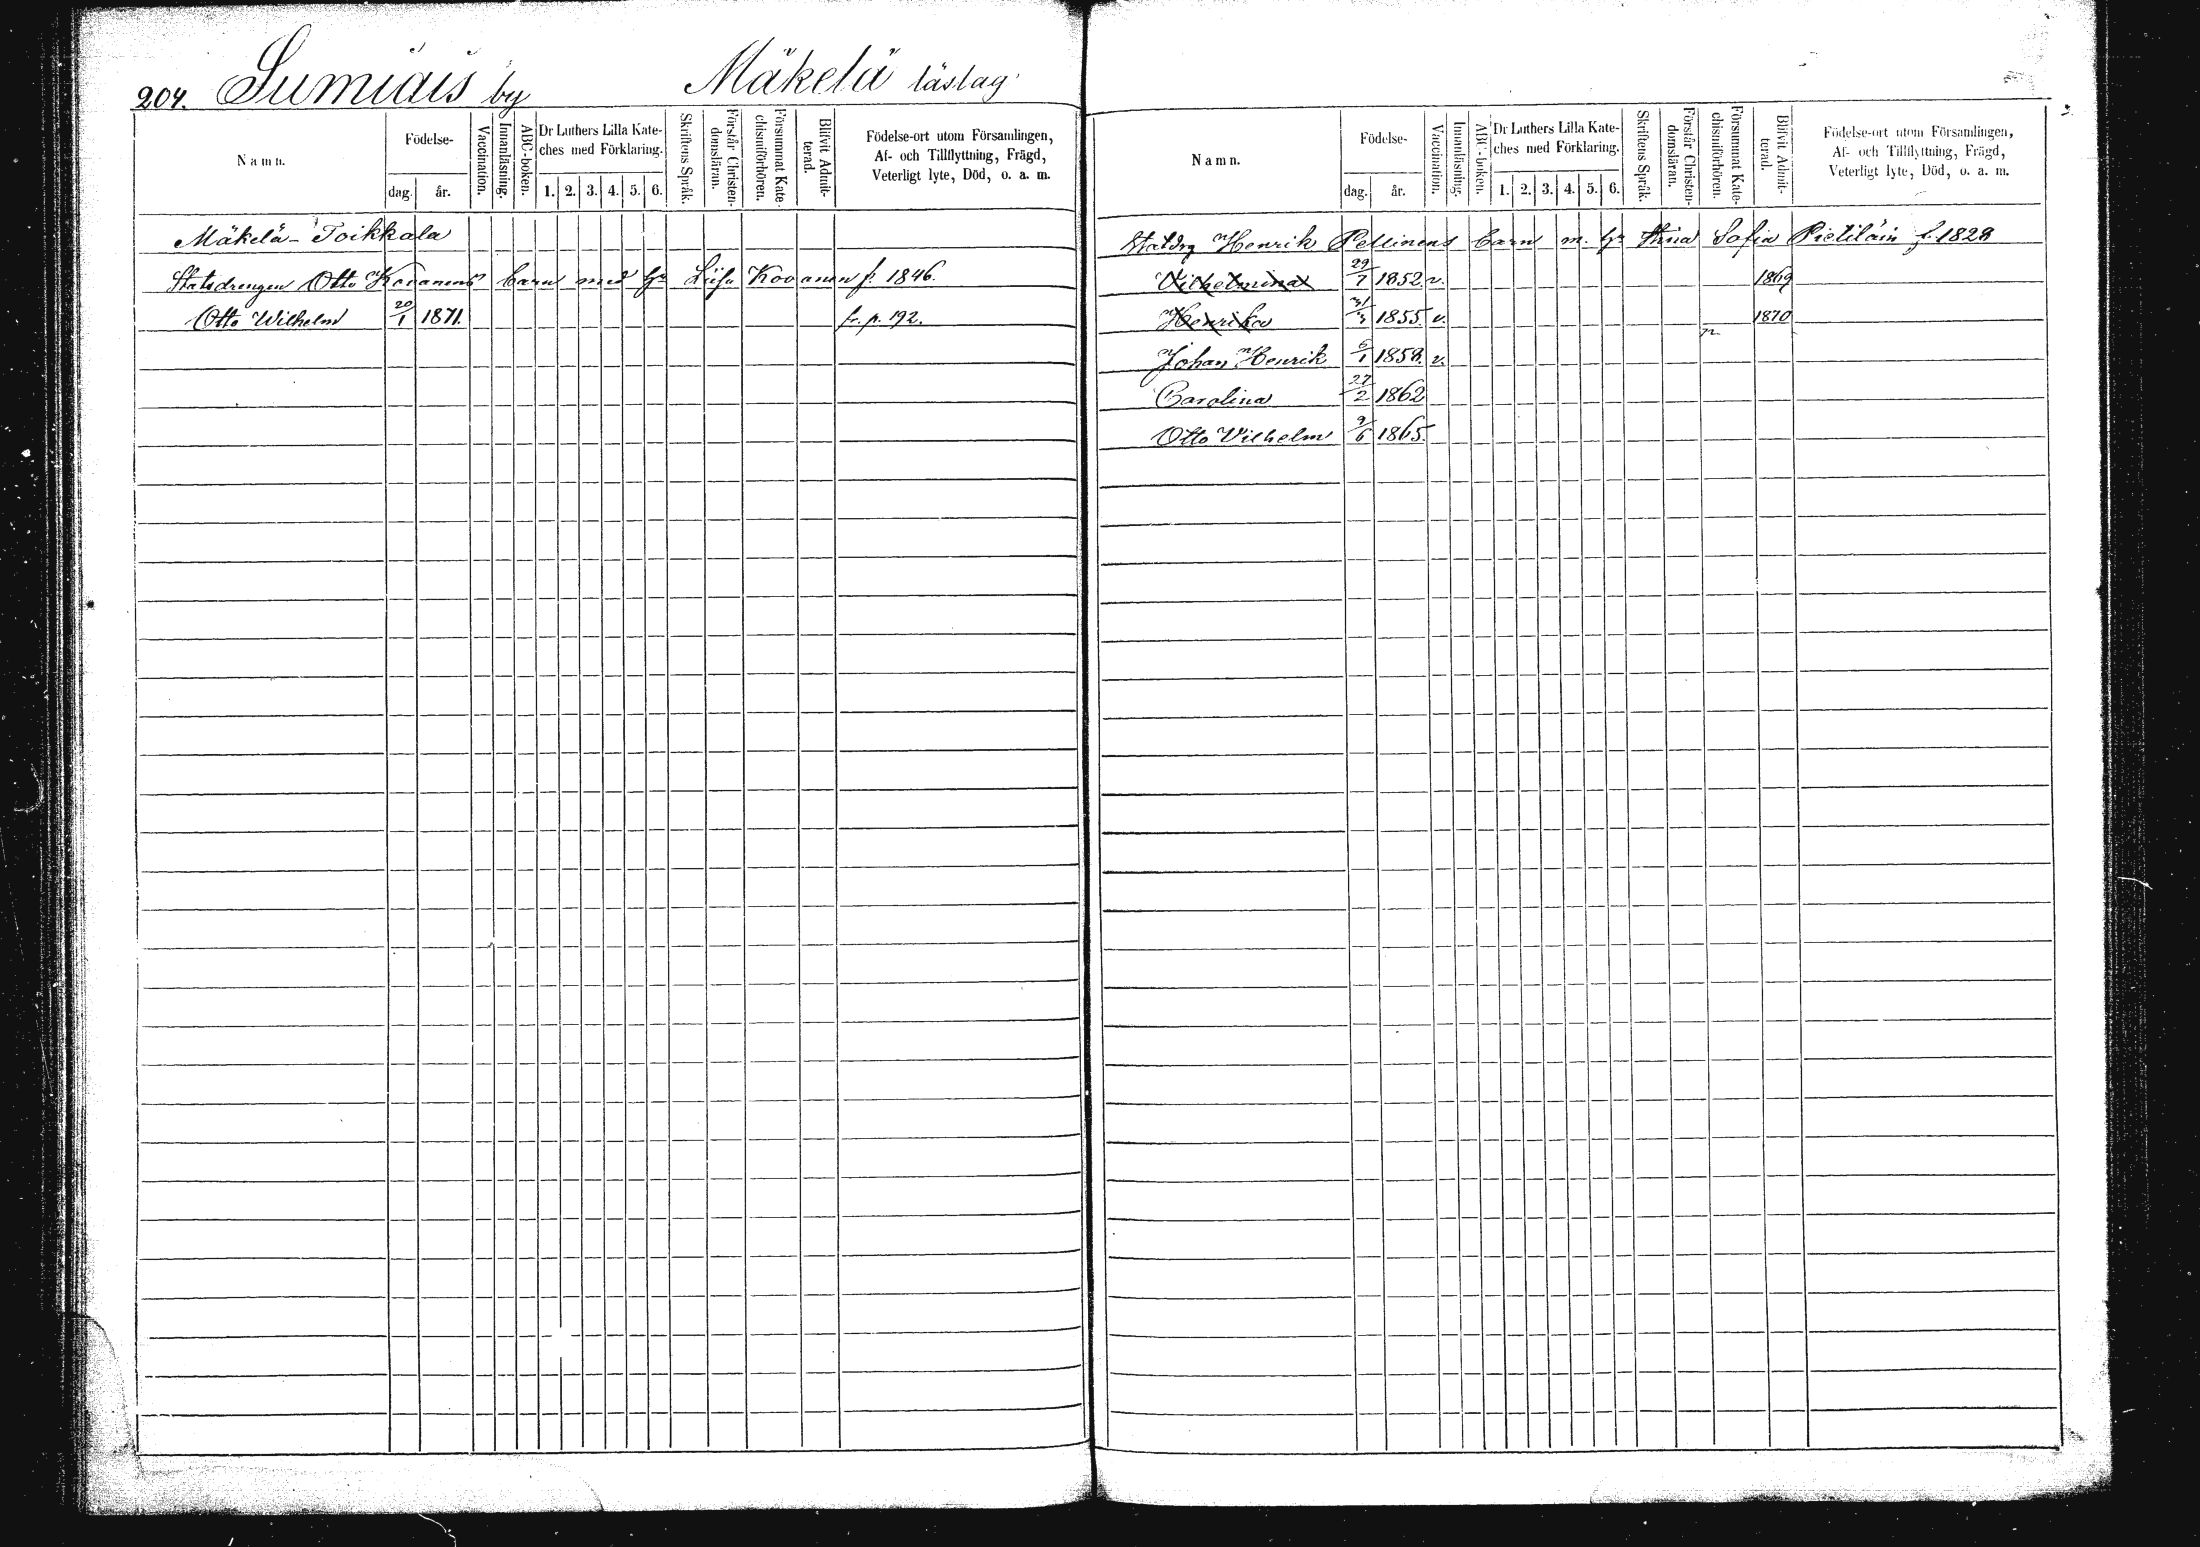 204. Sumiais by Mäkelä läslag
Namn.
Födelse-
dag. år.
Vaccination.
Innanläsning.
ABC-boken.
Dr Luthers Lilla Kate-
ches med Förklaring.
1. 2. 3. 4. 5. 6.
Skriftens Språk.
Förstår Christen-
domsläran.
Försummat Kate-
chismiförhören.
Blifvit Admit-
terad.
Födelse-ort utom Församlingen,
Af- och Tillflyttning, Frägd,
Veterligt lyte, Död, o. a. m.
Mäkelä-Toikkala
Statsdrengen Otto Kovanens barn med h. Liisa Kovanen f. 1846.
Otto Wilhelm 20/1 1871. fr. p. 192.
Namn.
Födelse-
dag. år.
Vaccination.
Innanläsning.
ABC-boken.
Dr Luthers Lilla Kate-
ches med Förklaring.
1. 2. 3. 4. 5. 6.
Skriftens Språk.
Förstår Christen-
domsläran.
Försummat Kate-
chismiförhören.
Blifvit Admit-
terad.
Födelse-ort utom Församlingen,
Af- och Tillflyttning, Frägd,
Veterligt lyte, Död, o. a. m.
Statdrg Henrik Pellinens barn m. h. Stina Sofia Pietiläin f. 1828
Vilhelmina 29/7 1852 v. 1869
Henrika 31/3 1855 v. 1870
n
Johan Henrik 6/1 1858. v.
Carolina 27/2 1862
Otto Vilhelm 9/6 1865.